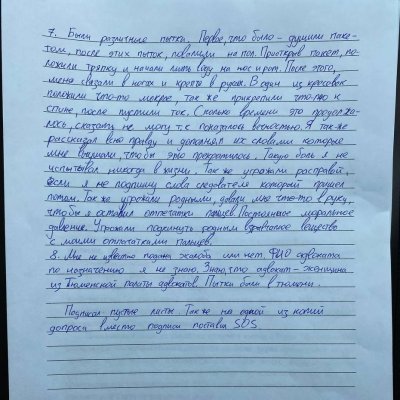 7. Были различные пытки. Первое, что было - душили паке-
том, после этих пыток, повалили на пол. Приоткрыв пакет, по-
ложили тряпку и начали лить воду на нос и рот. После этого,
меня связали в ногах и кроте в руках. В один из кросовок
положили что-то мокрое, так же прикрепили что-то к
спине, после пустили ток. Сколько времени это продолжа-
лось, сказать не могу, т.к. показалось вечностью. Я так же
рассказал всю правду и дополнял их словами которые
мне внушали, чтобы это прекратилось. Такую боль я не
испытывал никогда в жизни. Так же угрожали расправой,
если я не подпишу слова следователя который пришел
потом. Так же угрожали родными, давали мне что-то в руку,
чтобы я оставил отпечатки пальцев. Постоянное моральное
давление. Угрожали подкинуть родным взрывчатое вещество
с моими отпечатками пальцев.
8. Мне не известно подана жалоба или нет. ФИО адвоката
по назначению я не знаю. Знаю, что адвокат - женщина
из Тюменской палаты адвокатов. Пытки были в тюмени.
Подписал пустые листы. Так же на одной из копий
допроса вместо подписи поставил SOS.